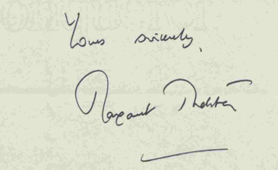 Yours sincerely,
Margaret Thatcher